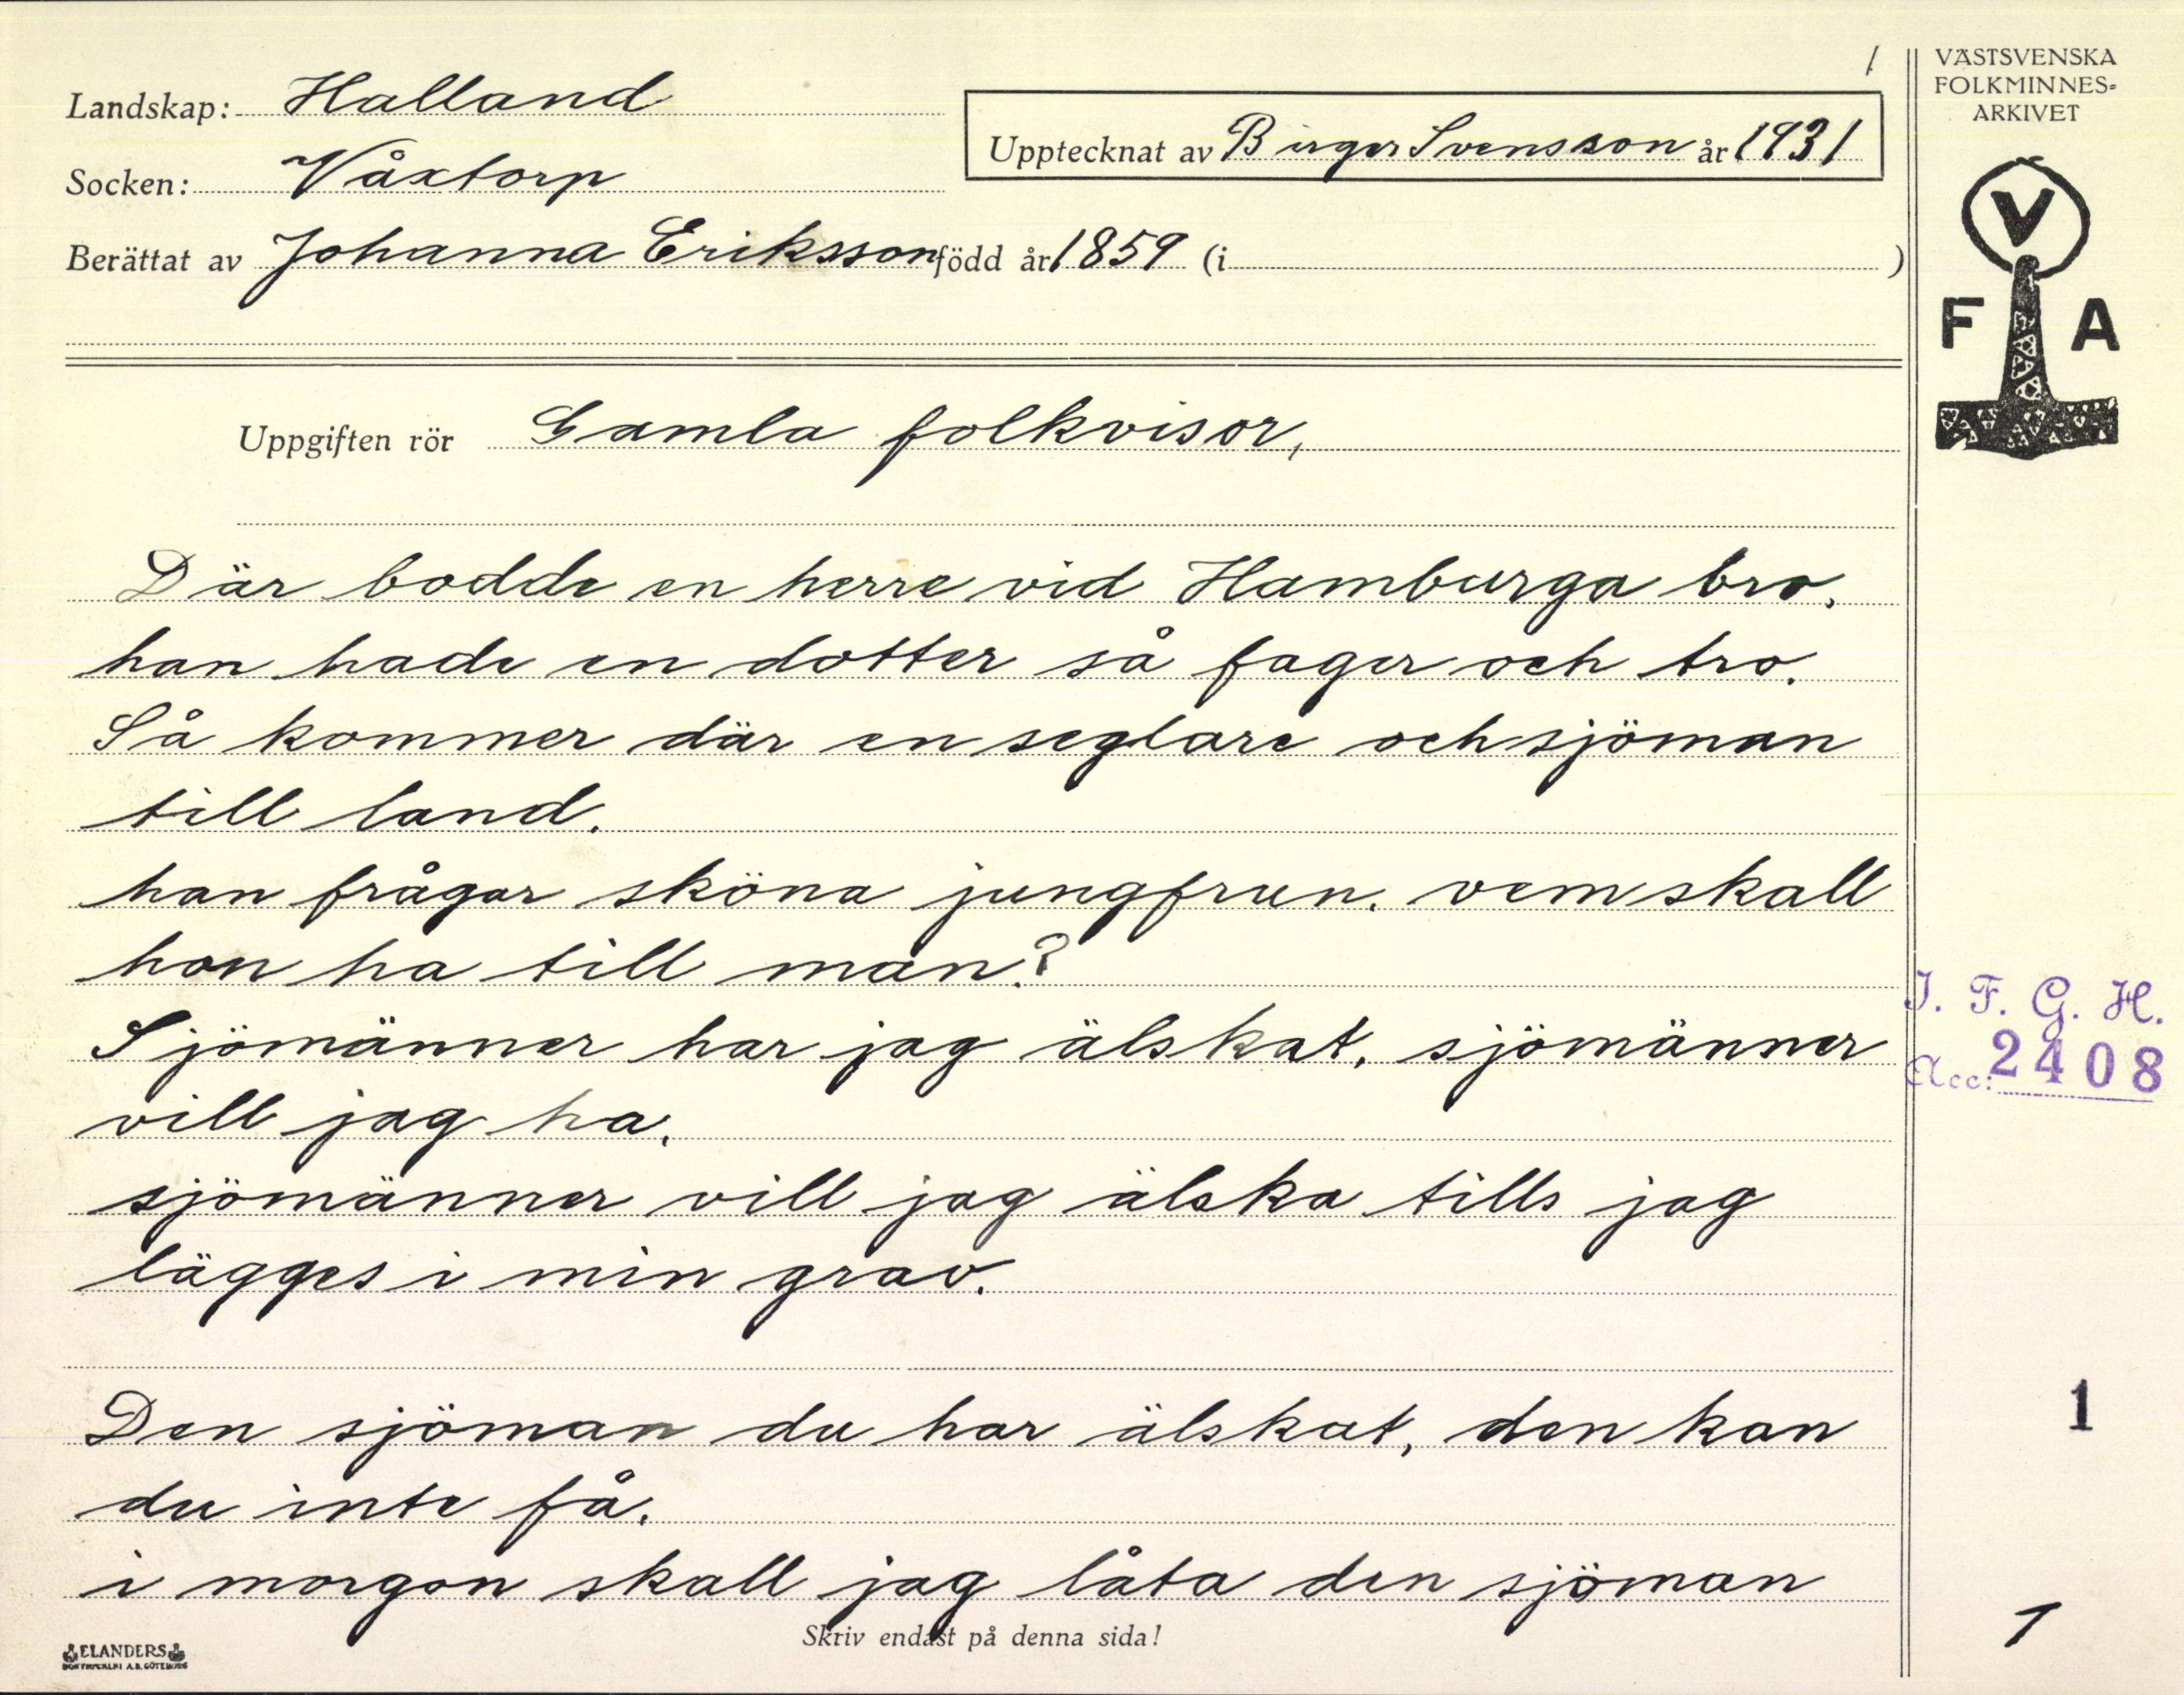 1
VÄSTSVENSKA
FOLKMINNES-
ARKIVET
Landskap: Halland
Upptecknat av Birger Svensson år 1931
Socken: Våxtorp
Berättat av Johanna Eriksson född år 1859 (i )
V
F A
Uppgiften rör Gamla folkvisor,
Där bodde en herre vid Hamburga bro,
han hade en dotter så fager och tro.
Så kommer där en seglare och sjöman
till land.
han frågar sköna jungfrun. vem skall
hon ha till man?
Sjömänner har jag älskat, sjömänner
vill jag ha,
sjömänner vill jag älska tills jag
lägges i min grav.
I. F. G. H.
Acc: 2408
Den sjöman du har älskat, den kan
du inte få.
i morgon skall jag låta den sjöman
1
1
Skriv endast på denna sida!
ELANDERS
BOKTRYCKERI A.B. GÖTEBORG